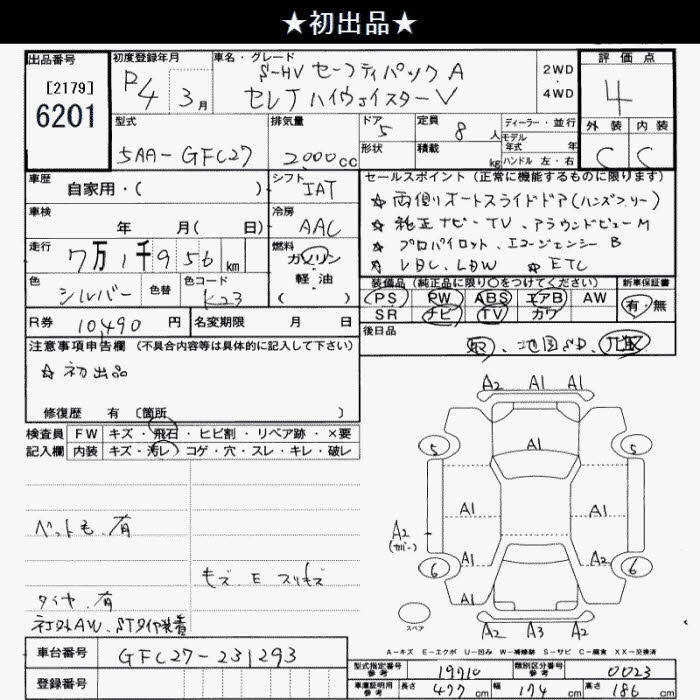 ★初出品★
出品番号
[2179]
6201
初度登録年月
R4 3月
車名・グレード
S-HV セーフティパックA
セレナ ハイウェイスターV
2WD
・
4WD
評価点
4
外装 内装
C C
型式
5AA-GFC27
排気量
2000cc
ドア 5
形状
定員 8人
積載 kg
ディーラー・並行
モデル年式 年
ハンドル 左・右
車歴
自家用・( )
シフト
IAT
車検
年 月( 日)
冷房
AAC
走行
7万1千956km
燃料
ガソリン
・
軽油
( )
色
シルバー
色替
色コード
K23
R券 10,490円
名変期限 月 日
セールスポイント(正常に機能するものに限ります)
☆両側オートスライドドア(ハンズフリー)
☆純正ナビ・TV、アラウンドビューM
☆プロパイロット、エマージェンシーB
☆VDC、LDW ☆ETC
装備品(純正品に限り○をつけてください)
PS PW ABS エアB AW
SR ナビ TV カワ
新車保証書
有・無
後日品
取、地図SD、
注意事項申告欄(不具合内容等は具体的に記入して下さい)
☆初出品
修復歴 有〔箇所 〕
検査員記入欄
FW キズ・飛石・ヒビ割・リペア跡・×要
内装 キズ・汚レ・コゲ・穴・スレ・キレ・破レ
ペットも有
モズE スリキズ
タイヤ有
ネジ式AW、STタイヤ装着
A2 A1 A1
A1
5 5
A1 A1
A2
(カバー)
A1 A2
6 6
A1
A2 A3 A2
スペア
A-キズ E-エクボ U-凹み W-補修跡 S-サビ C-腐食 XX-交換済
車台番号
GFC27-231293
登録番号
型式指定番号
参考
19710
類別区分番号
参考
0023
車庫証明用
参考
長さ 477cm
幅 174cm
高さ 186cm